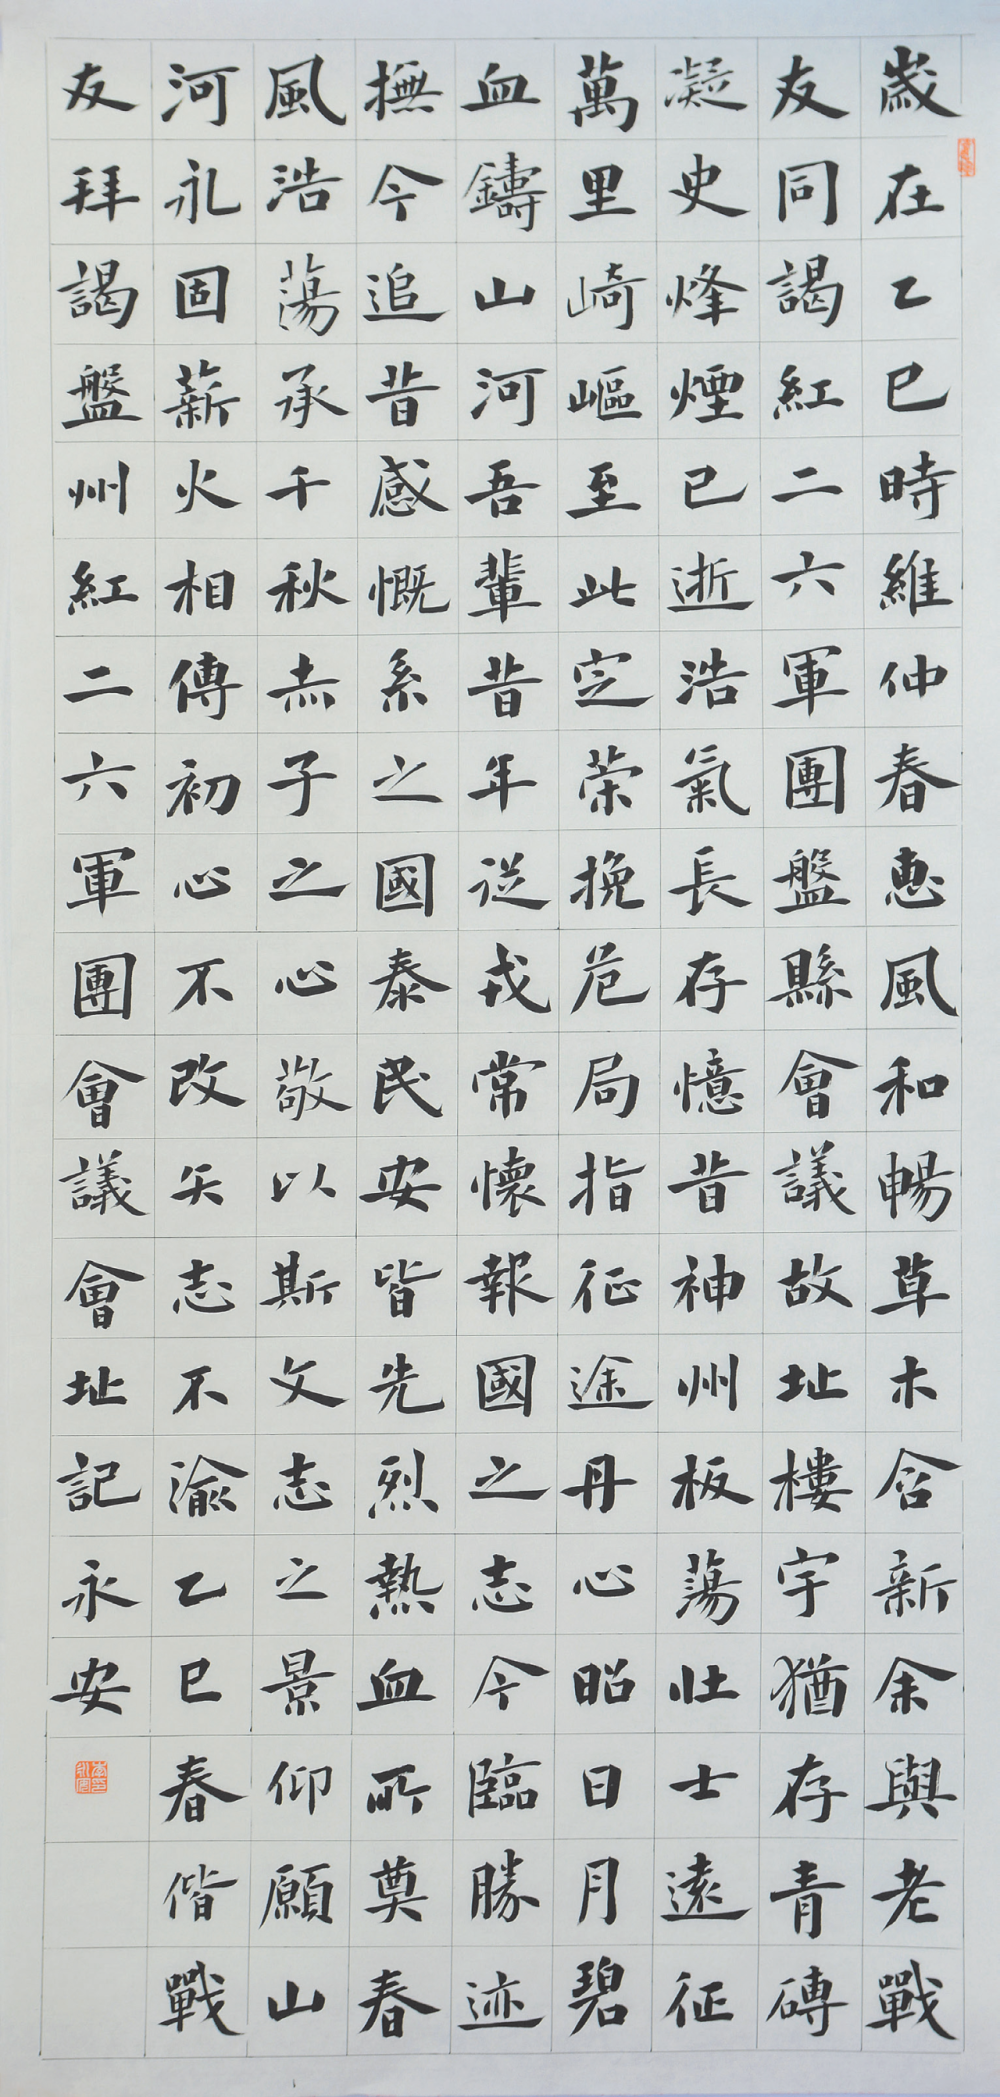 歲在乙巳時維仲春惠風和暢草木含新余與老戰
友同謁紅二六軍團盤縣會議故址樓宇猶存青磚
凝史烽煙已逝浩氣長存憶昔神州板蕩壯士遠征
萬里崎嶇至此定榮挽危局指征途丹心昭日月碧
血鑄山河吾輩昔年從戎常懷報國之志今臨勝迹
撫今追昔感慨系之國泰民安皆先烈熱血所奠春
風浩蕩承千秋赤子之心敬以斯文志之景仰願山
河永固薪火相傳初心不改矢志不渝乙巳春偕戰
友拜謁盤州紅二六軍團會議會址記永安